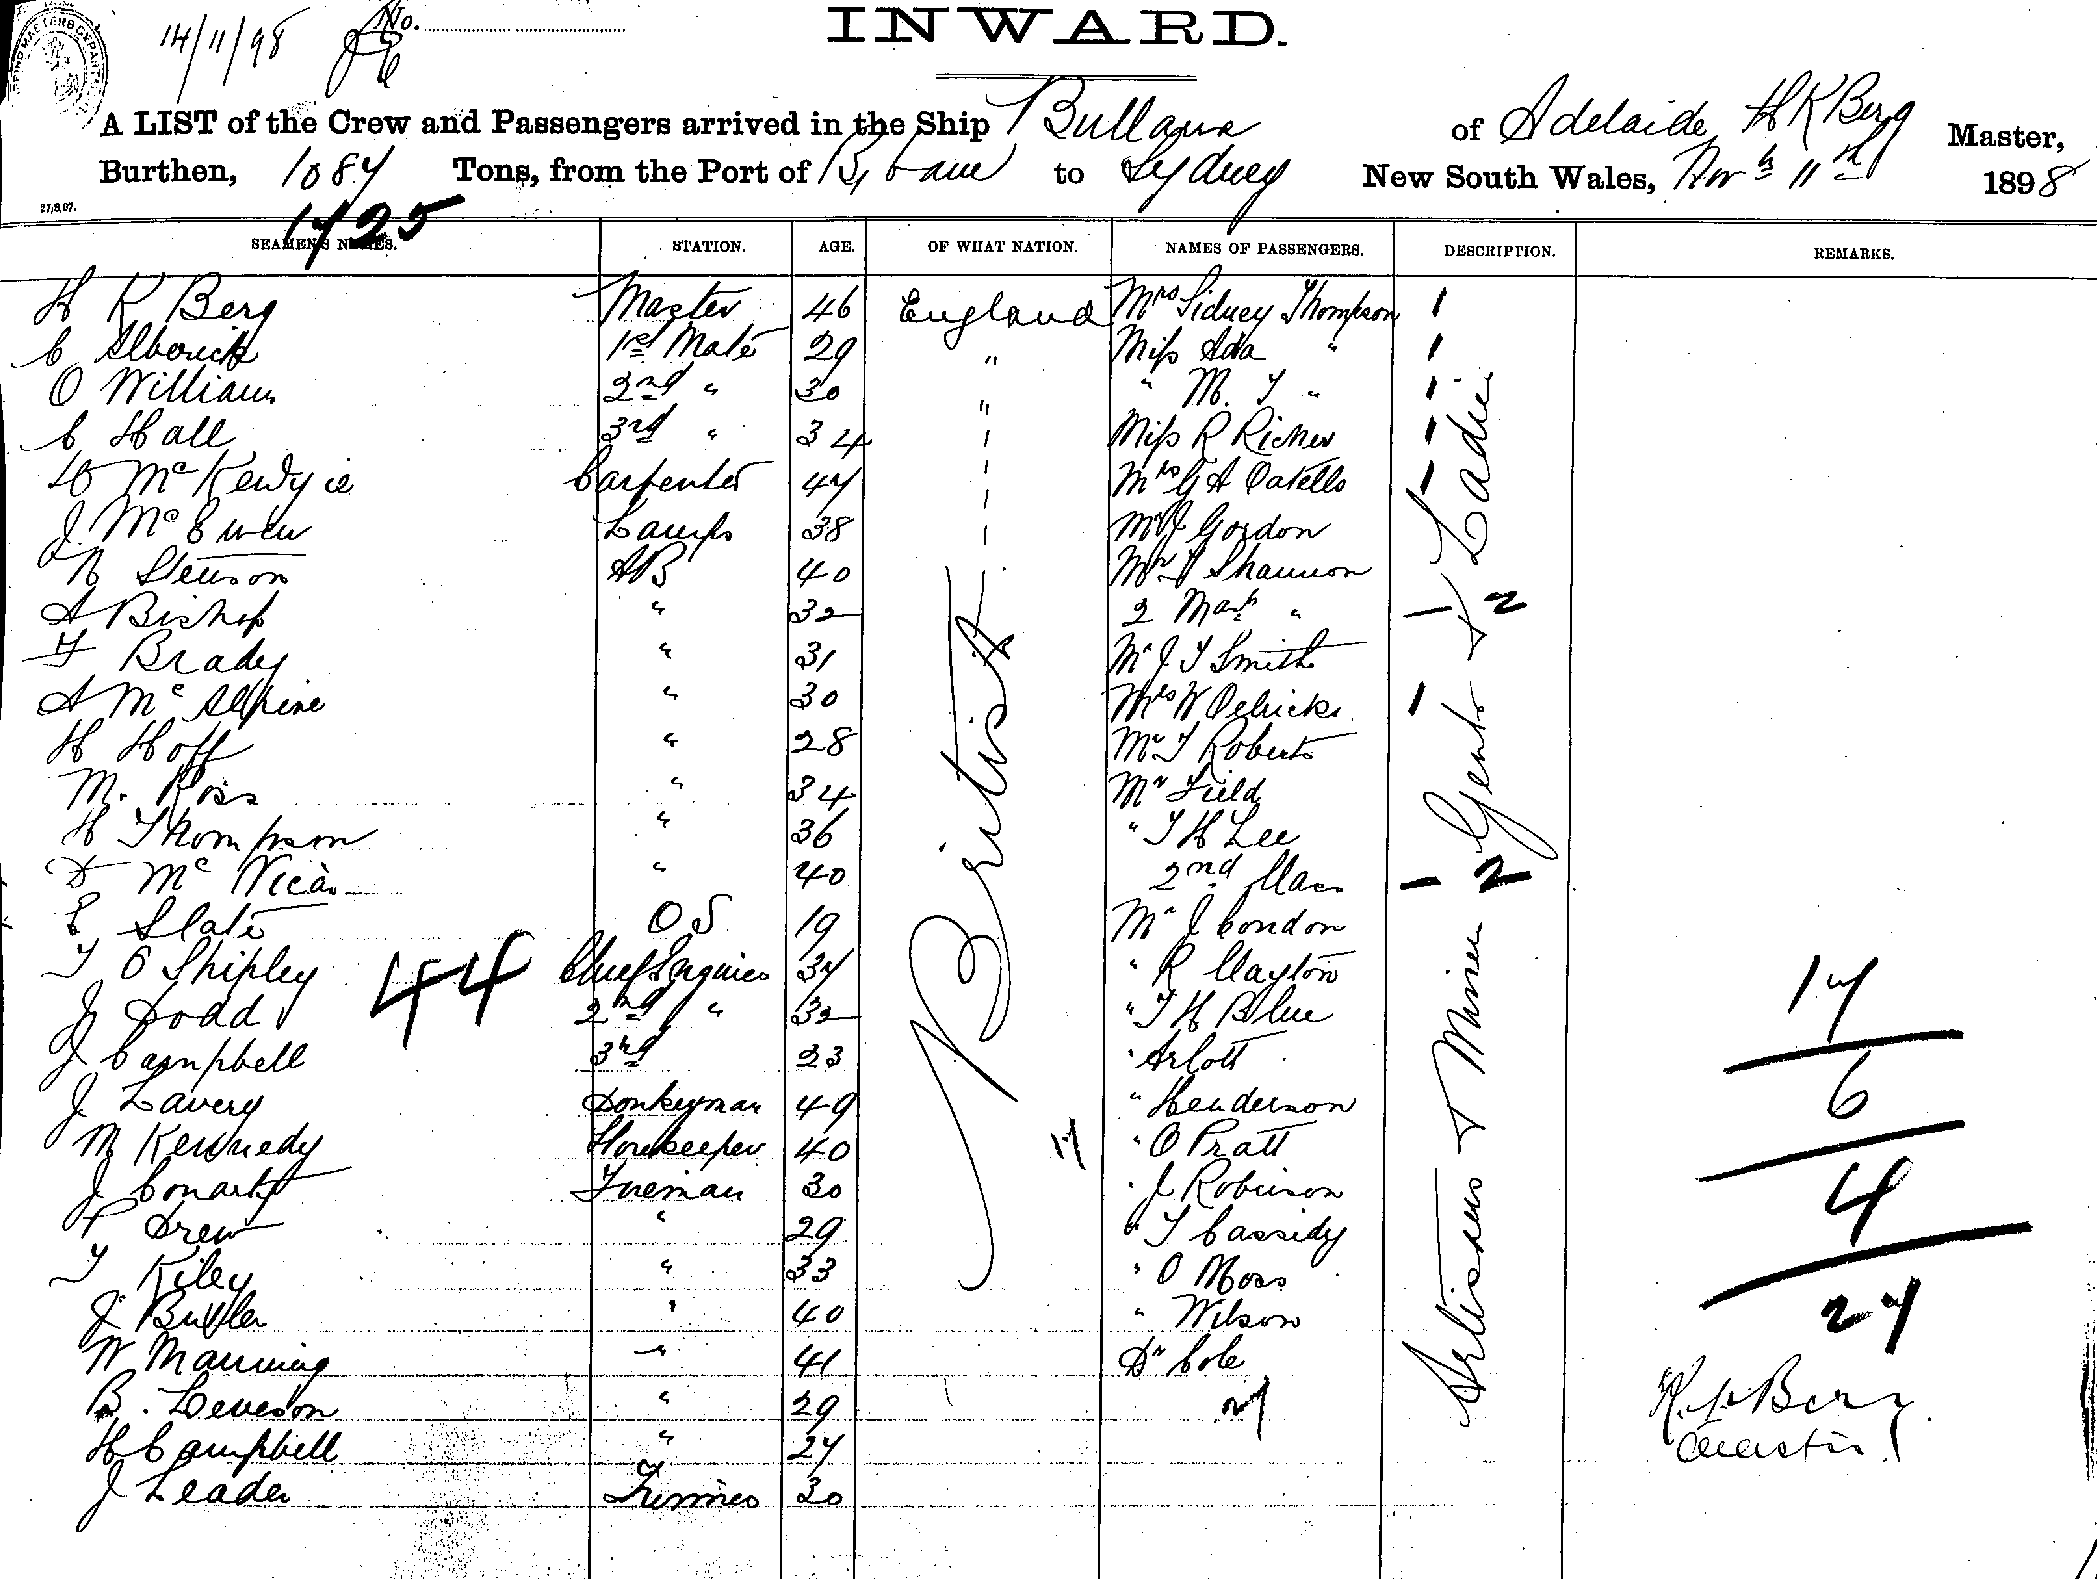 14/11/98
No.
INWARD.
A LIST of the Crew and Passengers arrived in the Ship Bullarra of Adelaide, H K Berg Master,
Burthen, 1087 Tons, from the Port of Bbane to Sydney New South Wales, Novb 11th 1898
27,8,97.
1725
SEAMEN'S NAMES. STATION. AGE. OF WHAT NATION. NAMES OF PASSENGERS. DESCRIPTION. REMARKS.
H K Berg Master 46 England Mrs Sidney Thompson 1
C 1st Mate 29 " Miss Ada " 1
O William 2nd " 30 " " M. T "
C Hall 3rd " 34 Miss R
Mc Carpenter 47 Mrs G A
J. McEwen Lamps 38 Gordon
Stenson AB 40 Shannon
A Bishop " 32 2 Mast " 2
T Brady " 31 Mr J T Smith
A McAlpine " 30 Mrs W 1
H Hoff " 28 Mr T Roberts
M. Ross " 34 Mr Field
H Thompson " 36 " T H Lee
D McNicar " 40 2nd Class 2
E Slate O S 19 Mr J Condon
T O Shipley Chief Engineer 37 " R Clayton
J Dodd 2nd " 32 " T H Blue
J Campbell 3rd 23 " Arlott
J Lavery Donkeyman 49 " Henderson
M Kennedy Storekeeper 40 " O Pratt
J Fireman 30 " J Robinson
P Drew " 29 " T Cassidy
T Kiley " 33 " O Moss
J Butler " 40 " Wilson
W Manning " 41 Dr Cole
B. Leveson " 29
H Campbell " 27
J Leader Trimmer 30
44
British
17
Ladies
Gents &
Artisans & Miners
17
6
4
27
H. K Berg
Master